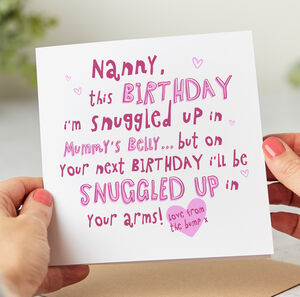 Nanny,
this BIRTHDAY
i'm snuggled up in
Mummy's Belly...but on
your next BIRTHDAY i'll be
SNUGGLED UP in
your arms!
Love from
the bump x